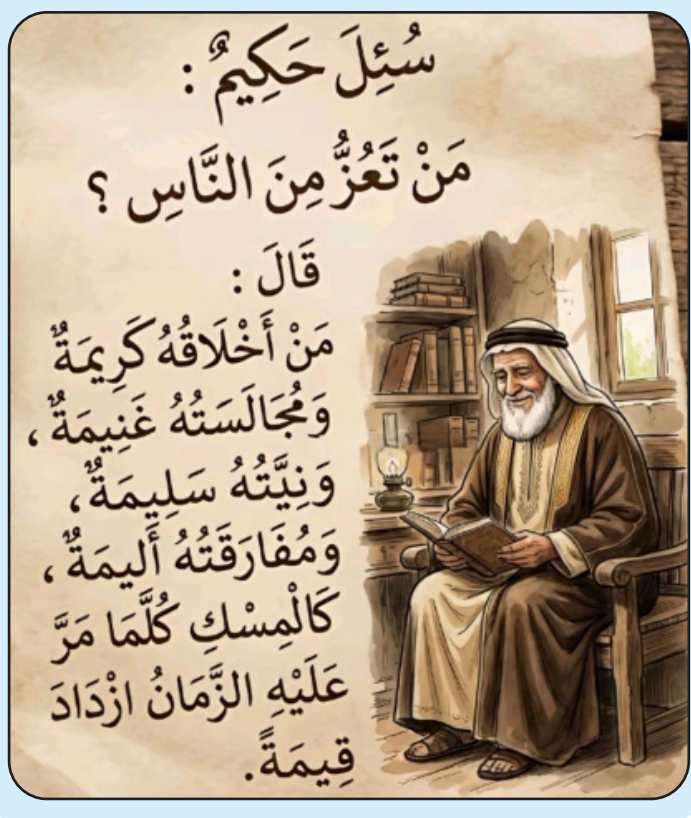 سُئِلَ حَكِيمٌ :
مَنْ تَعُزُّ مِنَ النَّاسِ ؟
قَالَ :
مَنْ أَخْلَاقُهُ كَرِيمَةٌ
وَمُجَالَسَتُهُ غَنِيمَةٌ ،
وَنِيَّتُهُ سَلِيمَةٌ ،
وَمُفَارَقَتُهُ أَلِيمَةٌ ،
كَالْمِسْكِ كُلَّمَا مَرَّ
عَلَيْهِ الزَّمَانُ ازْدَادَ
قِيمَةً.